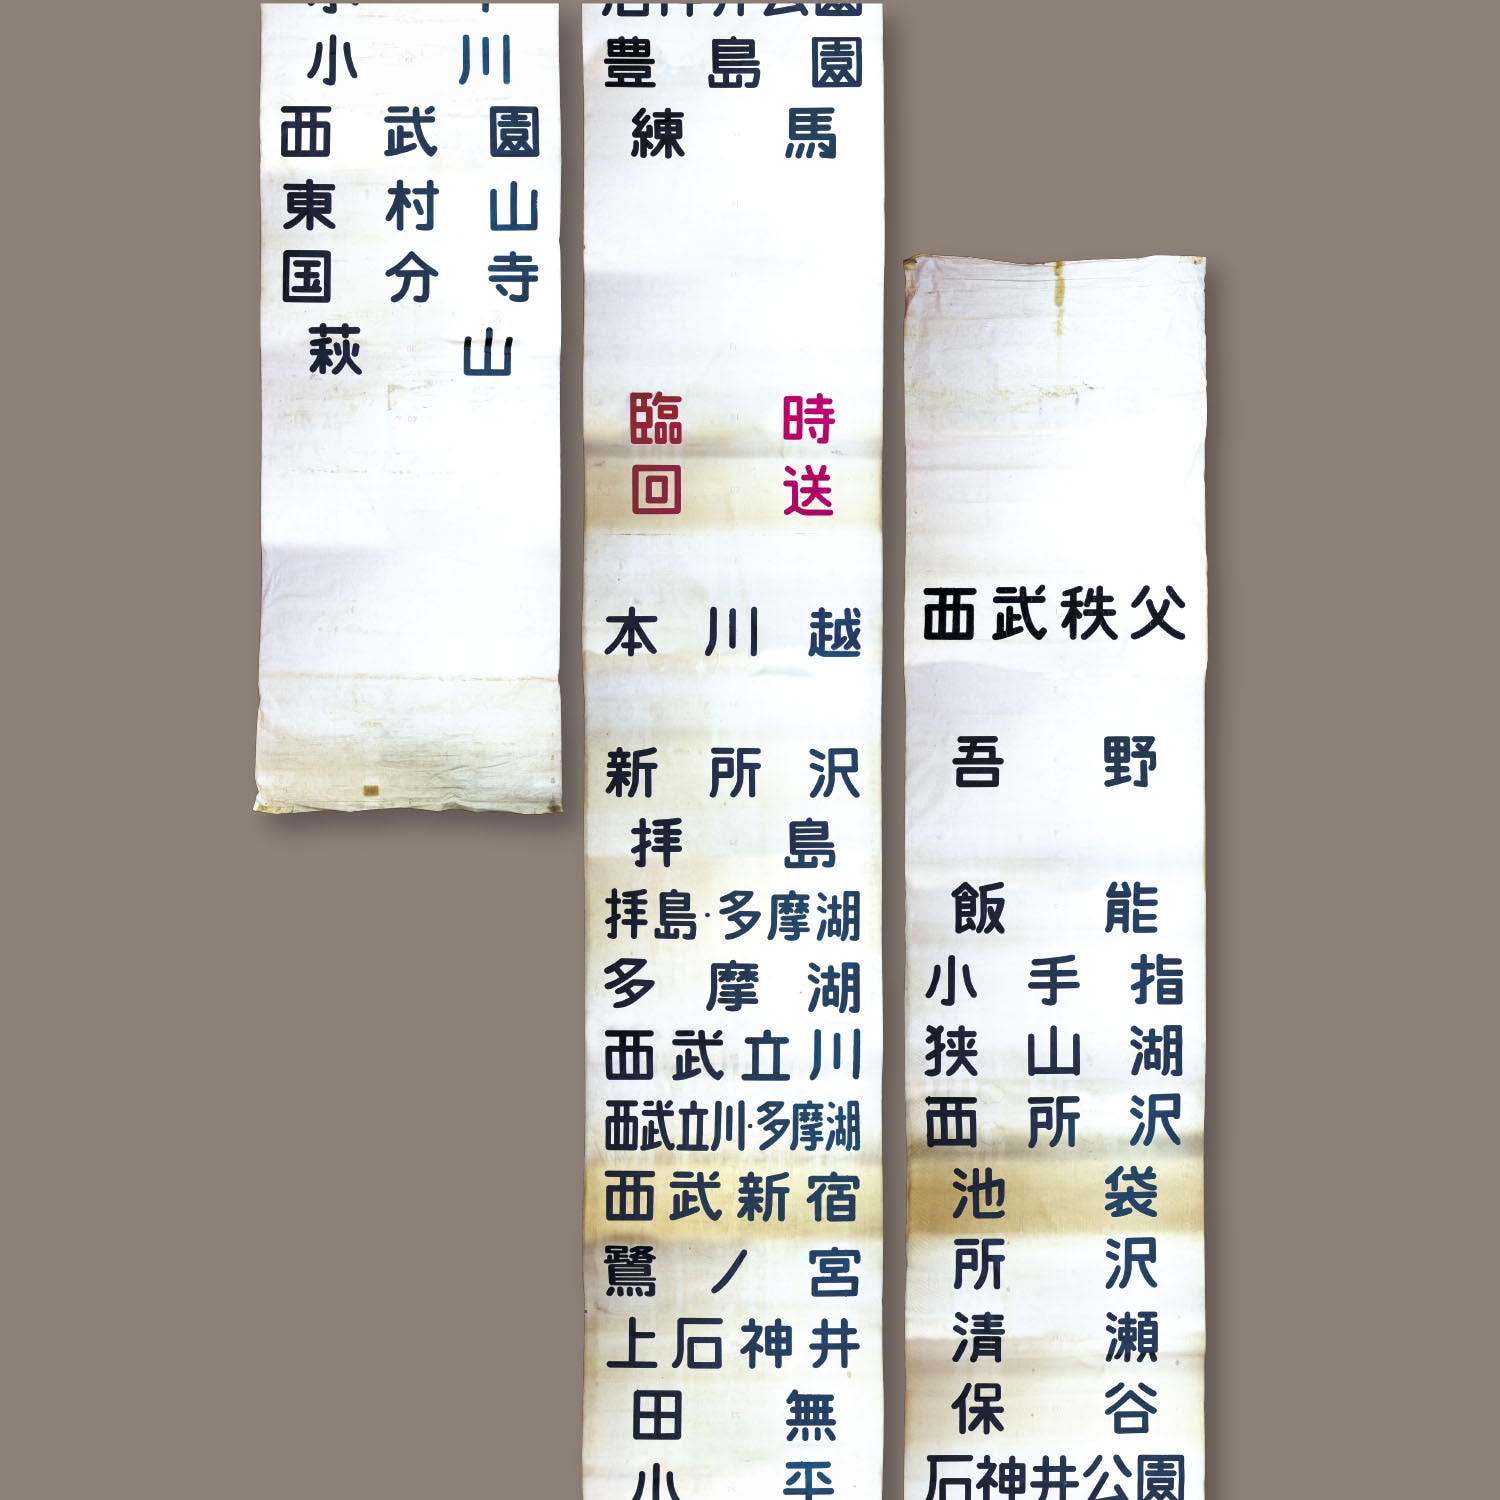 小川
西武園
東村山
国分寺
萩山
石神井公園
豊島園
練馬
臨時
回送
本川越
新所沢
拝島
拝島・多摩湖
多摩湖
西武立川
西武立川・多摩湖
西武新宿
鷺ノ宮
上石神井
田無
小平
西武秩父
吾野
飯能
小手指
狭山湖
西所沢
池袋
所沢
清瀬
保谷
石神井公園